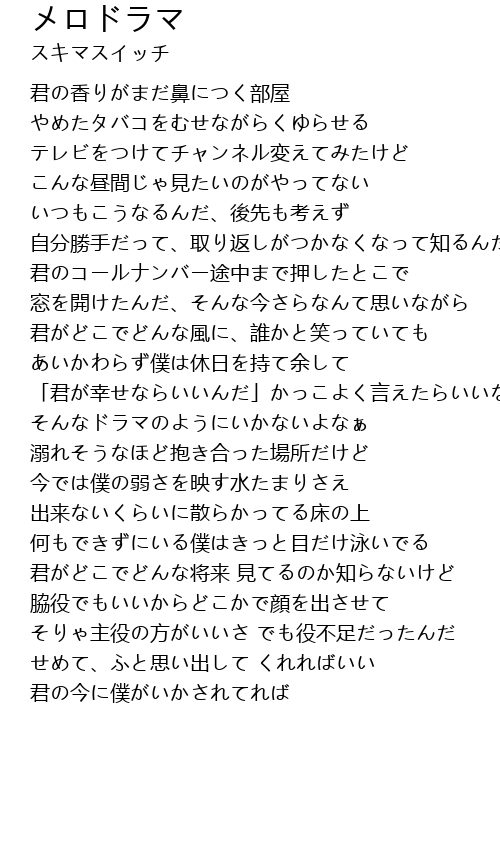 メロドラマ
スキマスイッチ
君の香りがまだ鼻につく部屋
やめたタバコをむせながらくゆらせる
テレビをつけてチャンネル変えてみたけど
こんな昼間じゃ見たいのがやってない
いつもこうなるんだ、後先も考えず
自分勝手だって、取り返しがつかなくなって知るんだ
君のコールナンバー途中まで押したとこで
窓を開けたんだ、そんな今さらなんて思いながら
君がどこでどんな風に、誰かと笑っていても
あいかわらず僕は休日を持て余して
「君が幸せならいいんだ」かっこよく言えたらいいな
そんなドラマのようにいかないよなぁ
溺れそうなほど抱き合った場所だけど
今では僕の弱さを映す水たまりさえ
出来ないくらいに散らかってる床の上
何もできずにいる僕はきっと目だけ泳いでる
君がどこでどんな将来 見てるのか知らないけど
脇役でもいいからどこかで顔を出させて
そりゃ主役の方がいいさ でも役不足だったんだ
せめて、ふと思い出して くれればいい
君の今に僕がいかされてれば